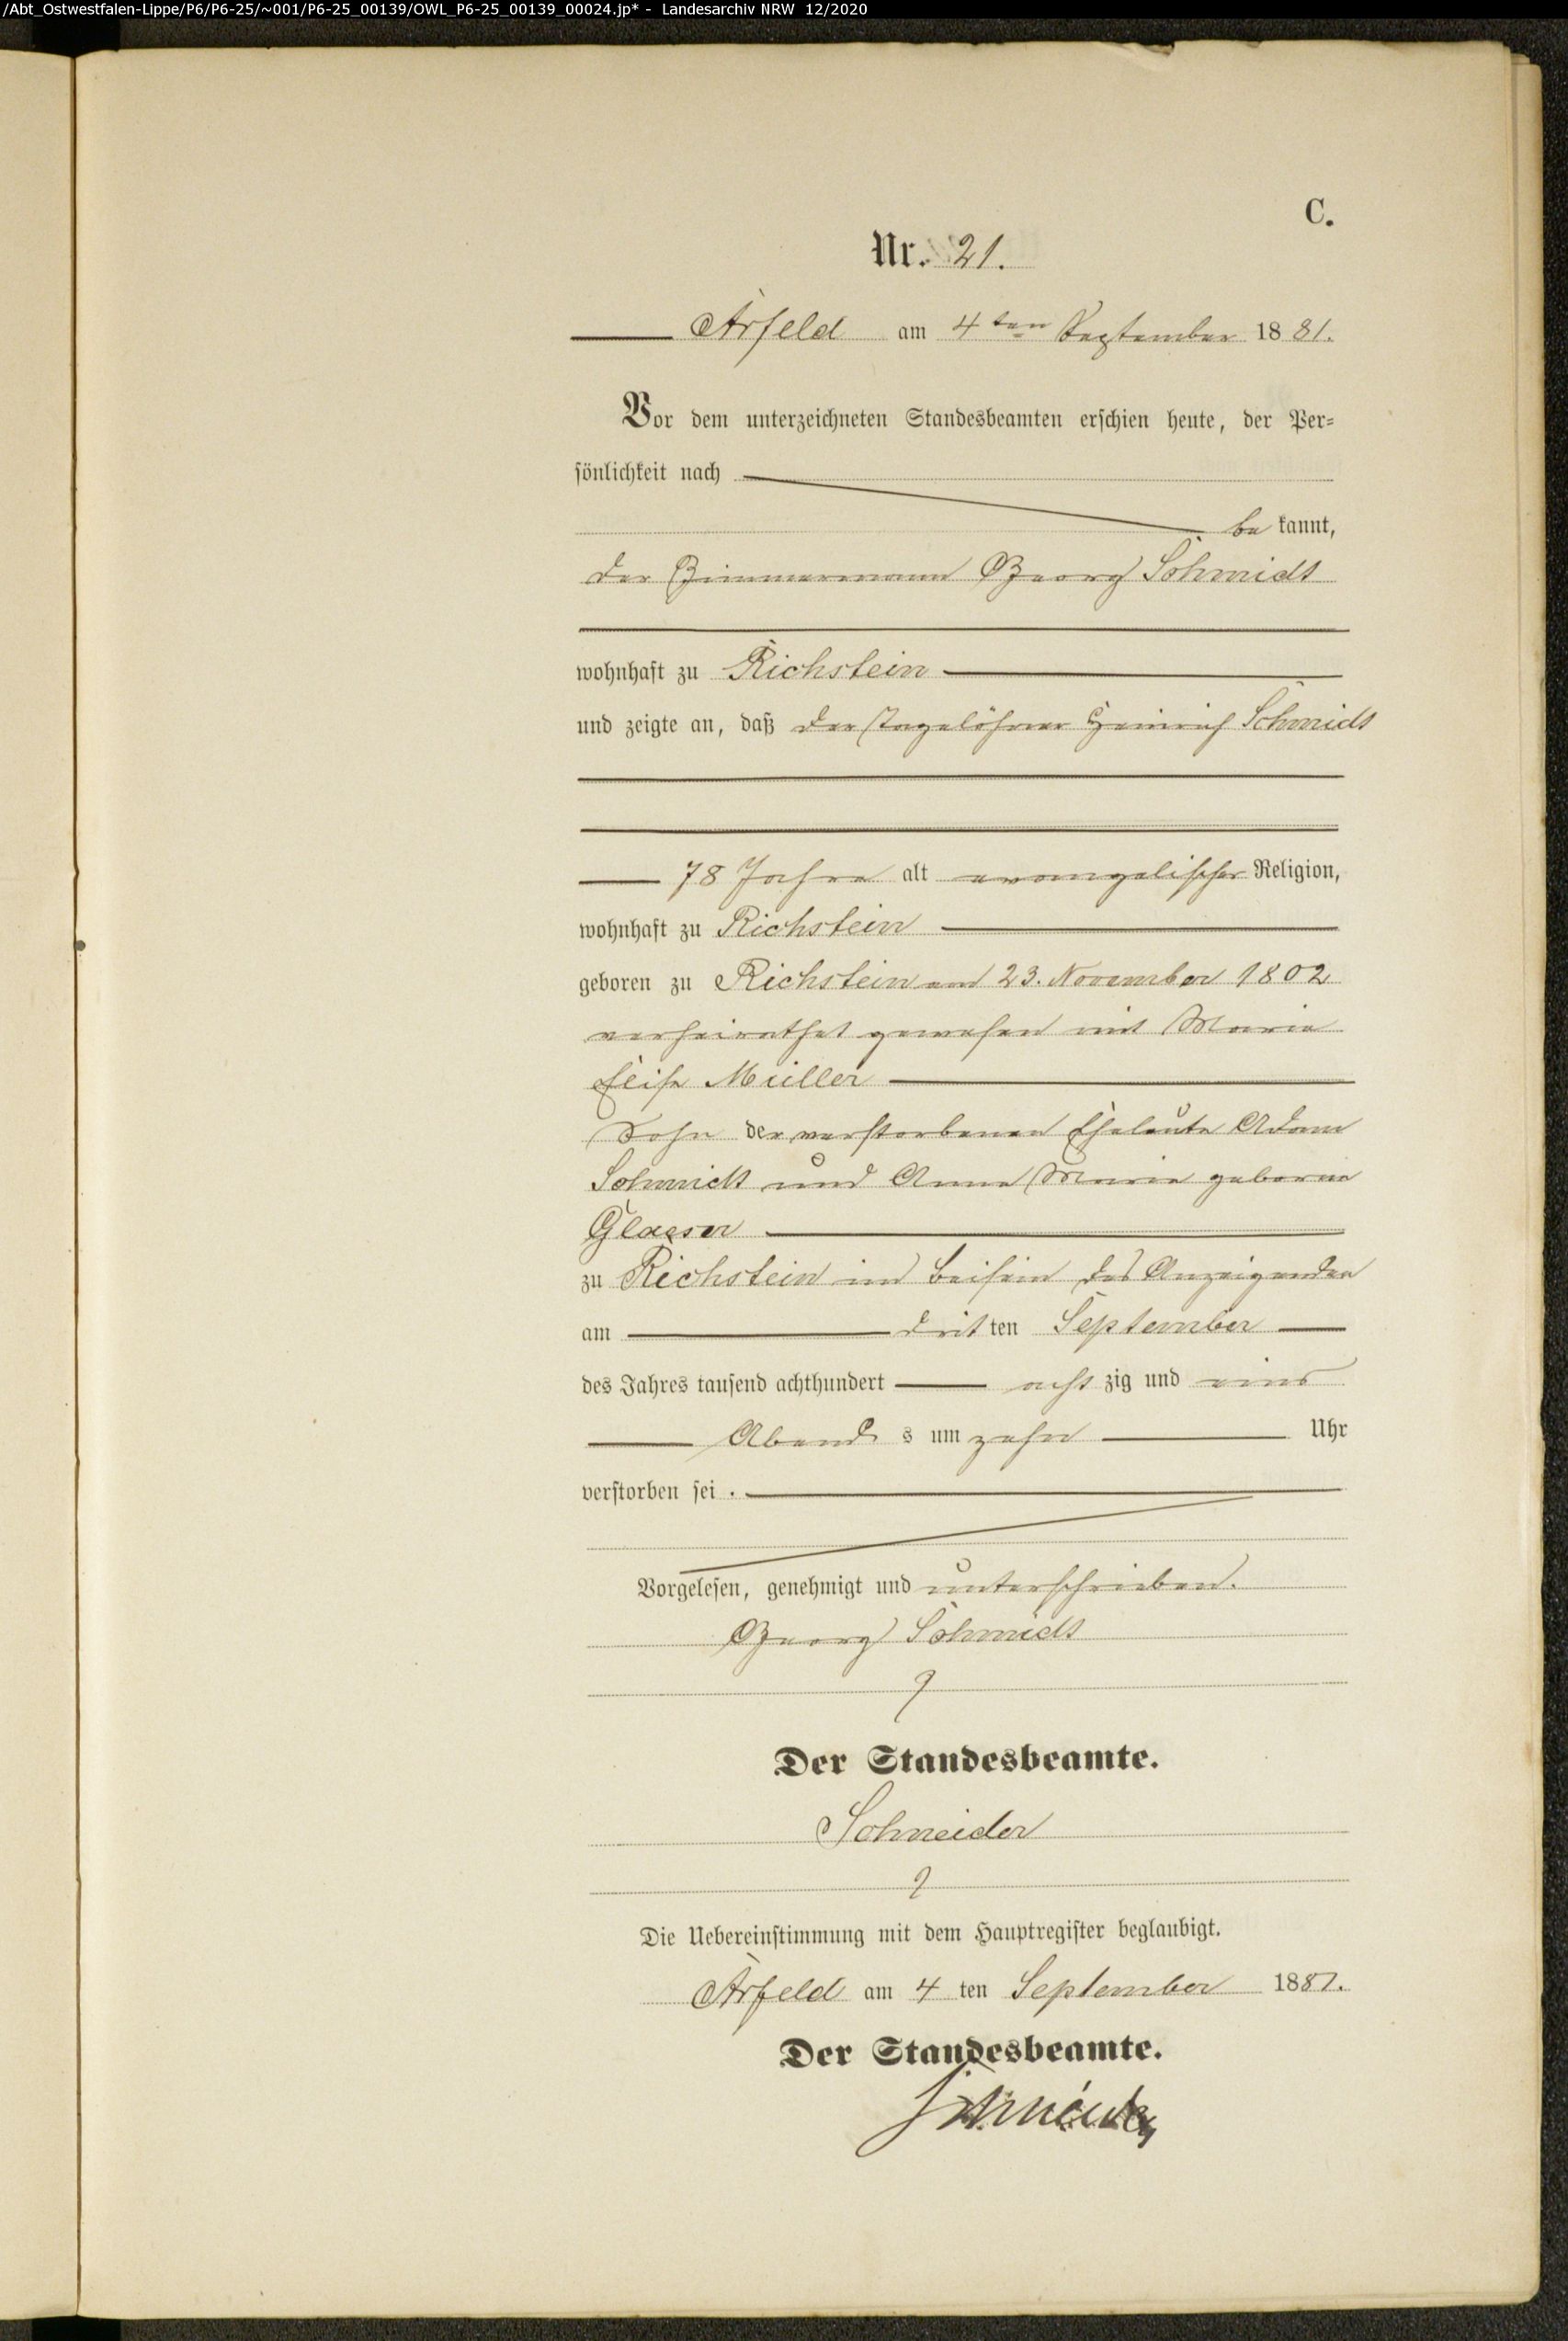 /Abt_Ostwestfalen-Lippe/P6/P6-25/~001/P6-25_00139/OWL_P6-25_00139_00024.jp* - Landesarchiv NRW 12/2020
C.
Nr. 21.
Arfeld am 4ten September 1881.
Vor dem unterzeichneten Standesbeamten erschien heute, der Per-
sönlichkeit nach
be kannt,
der Zimmermann Georg Schmidt
wohnhaft zu Richstein
und zeigte an, daß der Tagelöhner Heinrich Schmidt
78 Jahre alt evangelischer Religion,
wohnhaft zu Richstein
geboren zu Richstein am 23. November 1802
verheirathet gewesen mit Marie
Elise Müller
Sohn der verstorbenen Eheleute Adam
Schmidt und Anna Marie geborne
Glaeser
zu Richstein im Beisein des Anzeigenden
am drit ten September
des Jahres tausend achthundert acht zig und eins
Abend s um zehn Uhr
verstorben sei.
Vorgelesen, genehmigt und unterschrieben.
Georg Schmidt
Der Standesbeamte.
Schneider
Die Uebereinstimmung mit dem Hauptregister beglaubigt.
Arfeld am 4 ten September 1881.
Der Standesbeamte.
Schneider